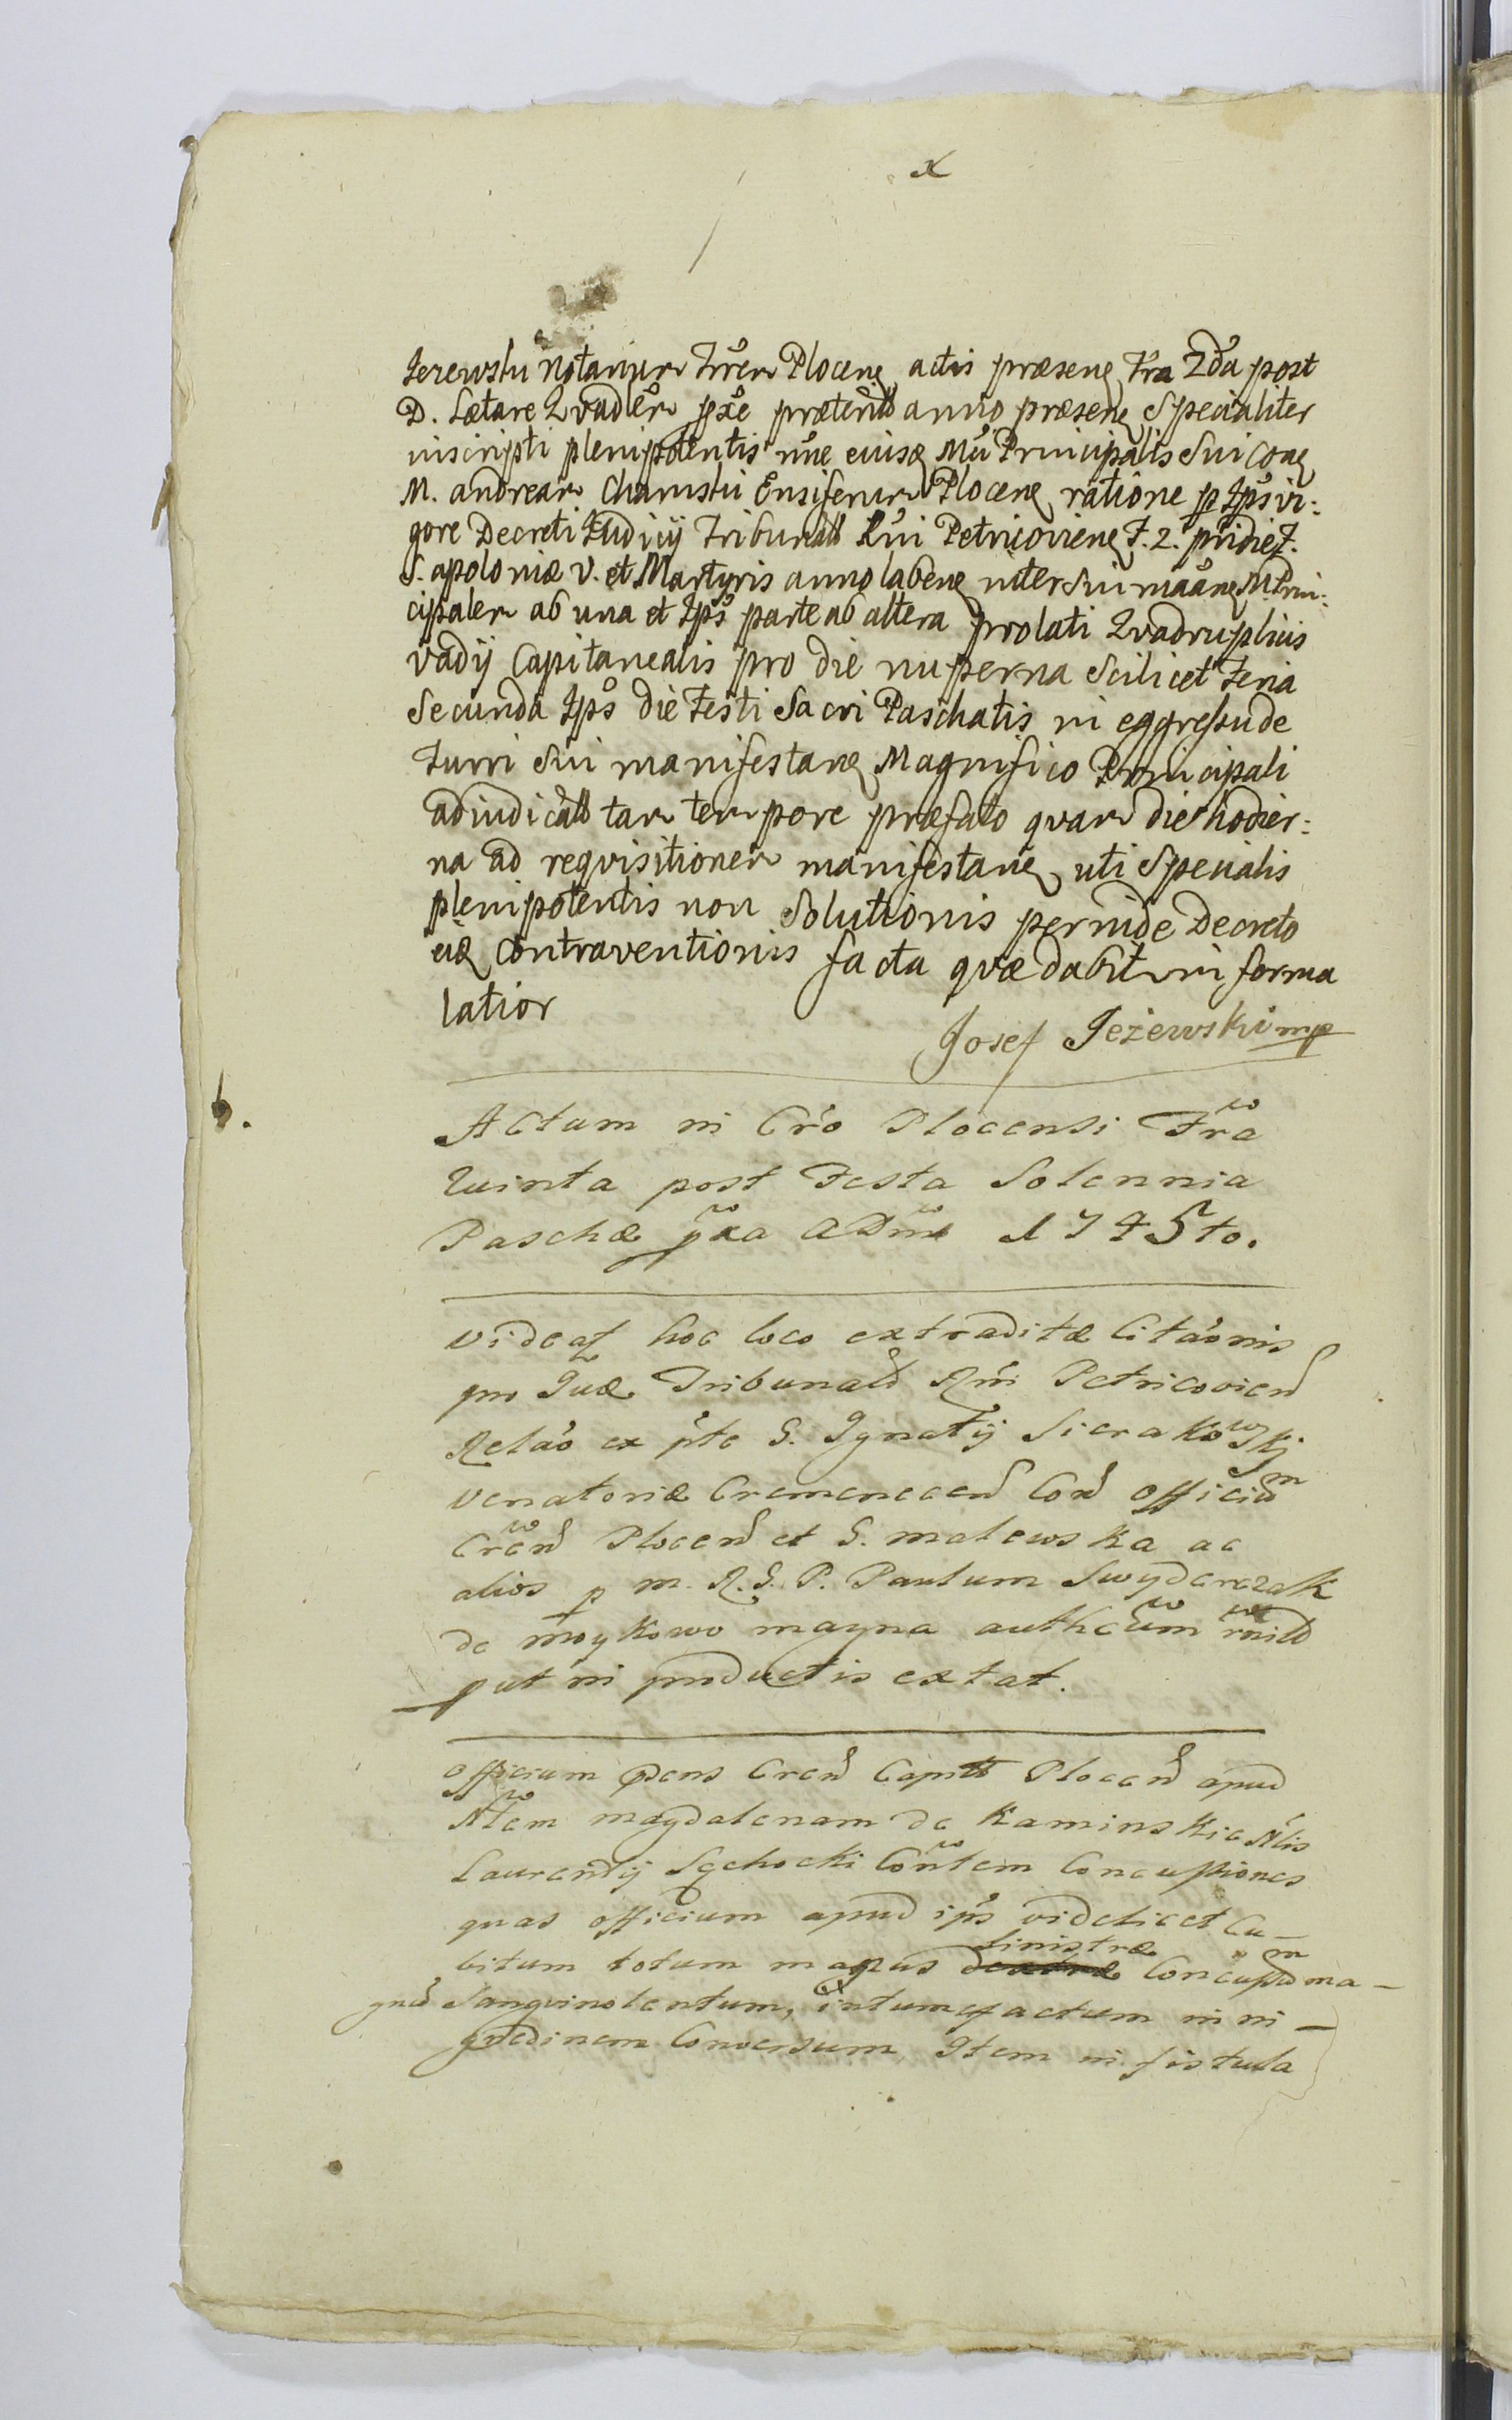 x
Jezewski Notarium Trrem Plocene actis præsene Fra 2da post
D. Lætare Qvadlem pxe præterito anno præsene Specialiter
inscripti plenipotentis nne eiusq Mci Principalis Sui cone
M. andream Chamski Ensiferum Plocene ratione p Ips vi:
gore Decreti Iudicij Tribunalis Rni Petricoviene F. 2. pridie F.
S. apoloniæ V. et Martyris anno labene inter Sui maane M Prin:
cipalem ab una et Ips parte ab altera prolati Qvadruplicis
vadij Capitanealis pro die nuperna Scilicet Feria
Secunda Ips die Festi Sacri Paschatis in eggressu de
Turri Sui manifestane Magnifico Principali
adiudicati tam tempore præfato qvam die hodier:
na ad reqvisitionem manifestane uti Specialis
plenipotentis non Solutionis perinde Decreto
eiq Contraventionis facta qvæ dabitur in forma
latiori
Josef Jeżewski mp
6.
Actum in Cro Plocensi Fra
Quinta post Festa Solennia
Paschæ pxa A Dni 1745to.
Videatz hoc loco extraditæ Citaonis
pro Iuæ Tribunal Rni Petricovien
Relao ex pte G. Ignatij Sierakowskj
Venatoriæ Cremenecen Con Officium
Cren Plocen et G. Malewska ac
alios p M. R. G. P. Paulum Swyderczak
de Moykowo magna authcum rnil
put in productis extat.
Officium pdens Cren Capitl Plocen apud
Nlem Magdalenam de Kaminskie Nlis
Laurentij Sęchocki Contem Concussiones
quas officium apud ips videlicet Cu-
bitum totum manus dextræ sinistræ Concussum ma-
gne Sangvinolentum, et intumefactum in ni-
gredinem Conversum, Item in fistula